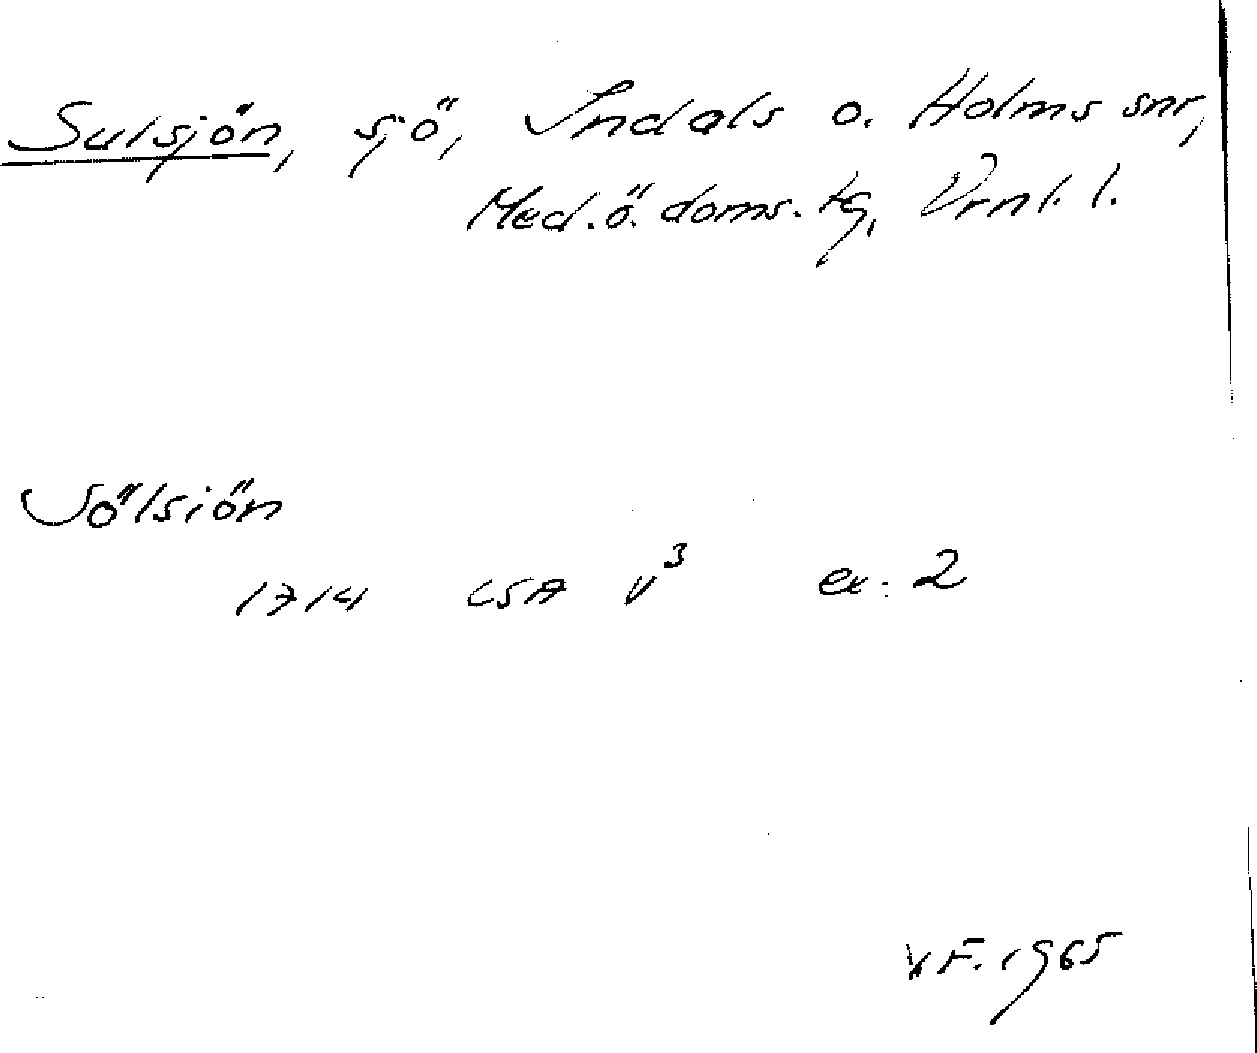 Sulsjön, sjö, Indals o. Holms snr,
Med. ö. doms. tg, Vrnl. l.
Sölsiön
1714 LSA V³ ex: 2
V F. 1965